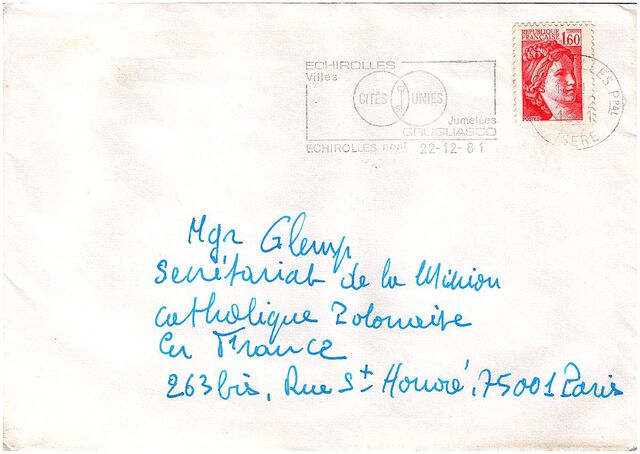 REPUBLIQUE
FRANÇAISE 1,60
POSTES
ECHIROLLES
Villes
CITÉS UNIES
Jumelées
GRUGLIASCO
ECHIROLLES ppal 22-12-81
LES PPAL
ISERE
Mgr Glemp
Secrétariat de la Mission
catholique Polonaise
en France
263 bis, Rue St Honoré, 75001 Paris